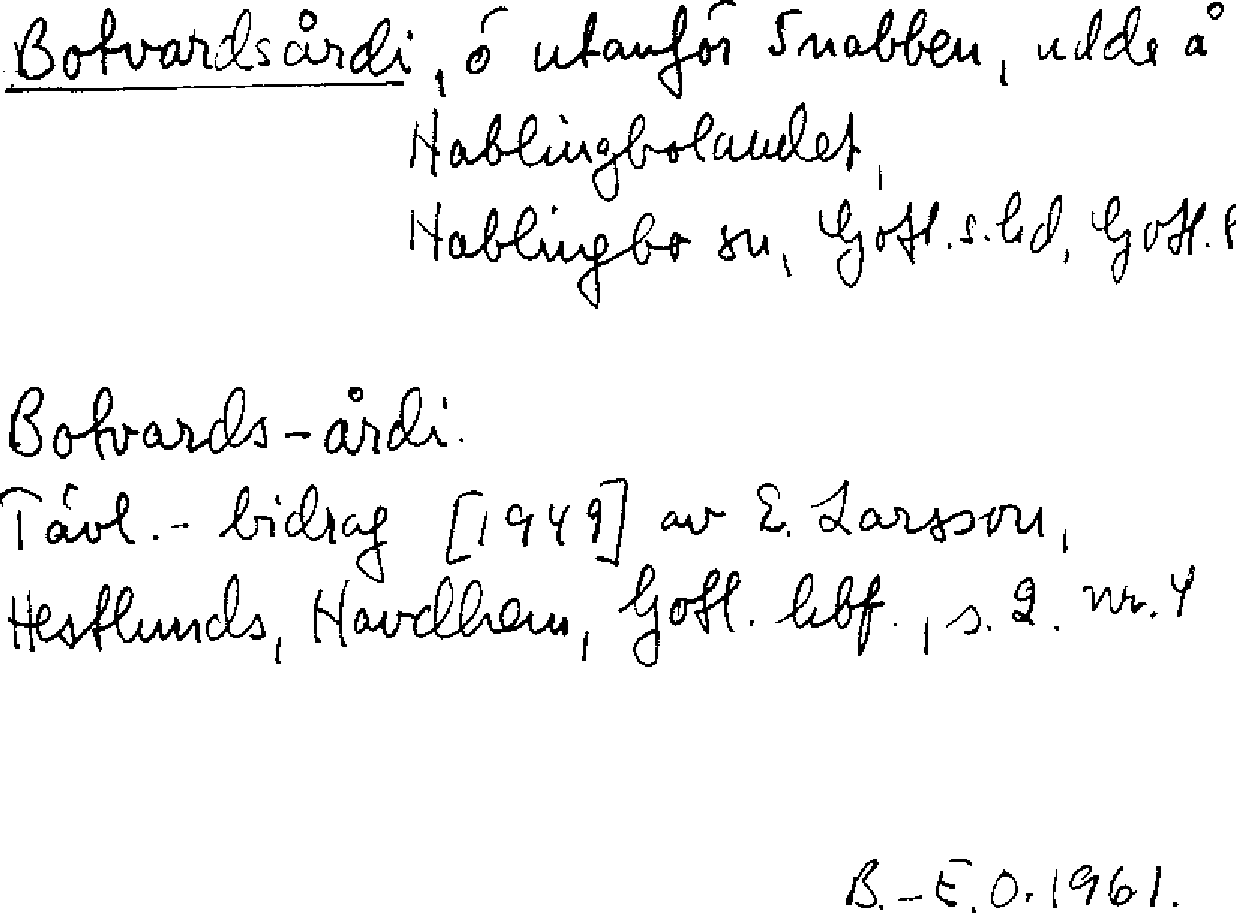 Botvardsårdi, ö utanför Snabben, udde å
Hablingbolandet,
Hablingbo sn, Gotl. s. hd, Gotl.
Botvards-årdi.
Tävl.-bidrag [1949] av E. Larsson,
Hestlunds, Havdhem, Gotl. hbf., s. 2. nr. 4
B.-E. O. 1961.